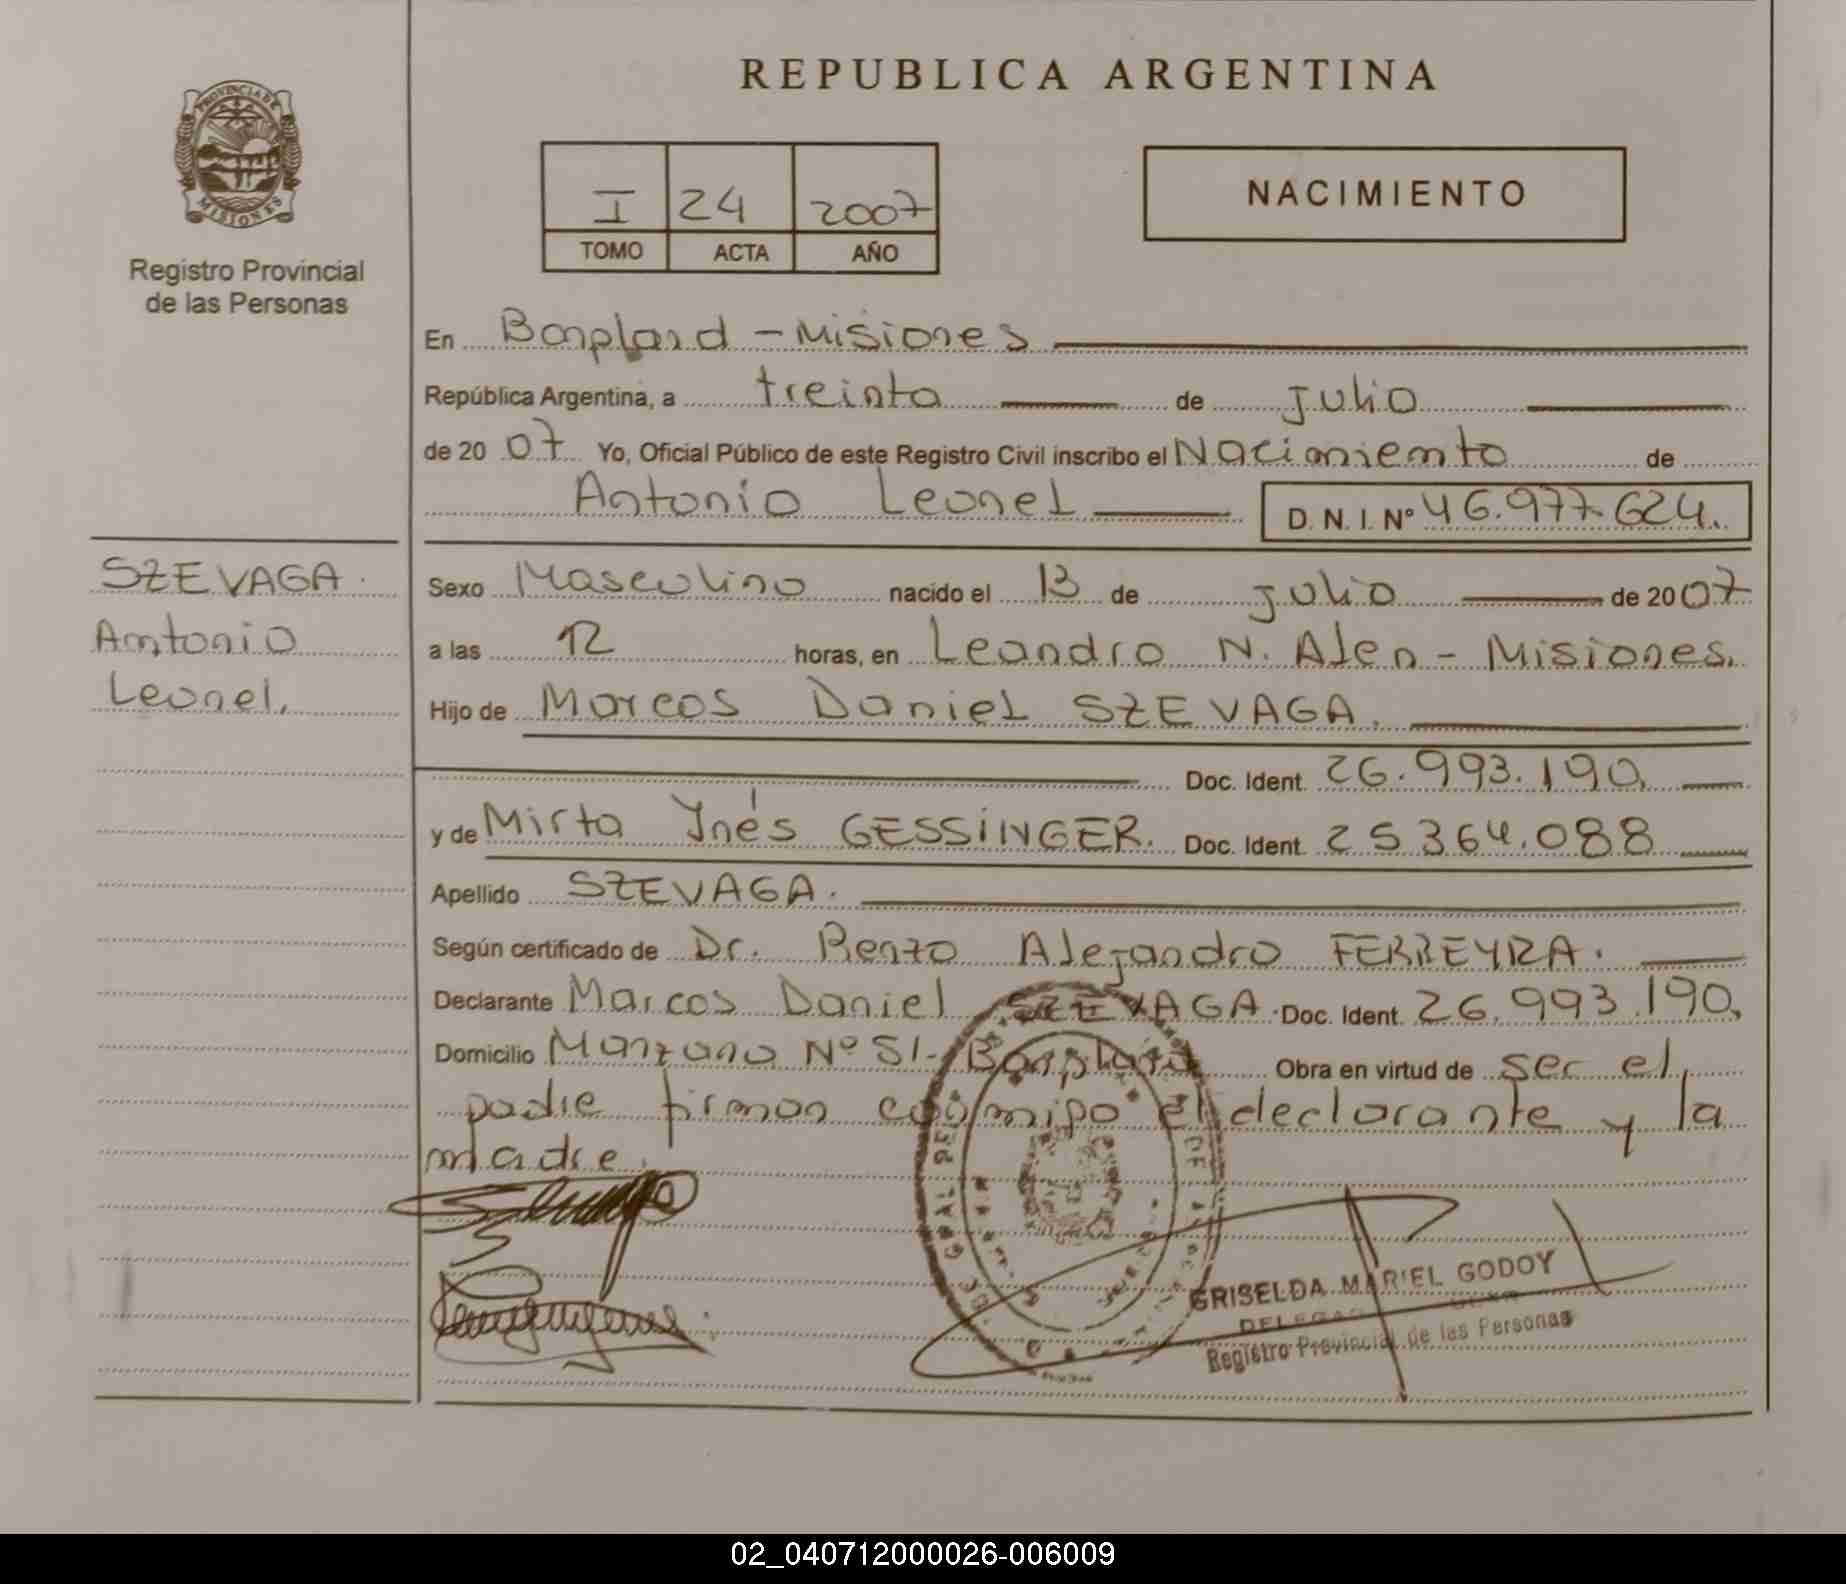 REPUBLICA ARGENTINA
PROVINCIA DE
MISIONES
Registro Provincial
de las Personas
I 24 2007
TOMO ACTA AÑO
NACIMIENTO
En Bonpland - Misiones
República Argentina, a treinta de Julio
de 20 07 Yo, Oficial Público de este Registro Civil inscribo el Nacimiento de
Antonio Leonel D. N. I. Nº 46.977.624.
SZEVAGA.
Antonio
Leonel.
Sexo Masculino nacido el 13 de Julio de 20 07
a las 12 horas, en Leandro N. Alen - Misiones.
Hijo de Marcos Daniel SZEVAGA.
Doc. Ident. 26.993.190.
y de Mirta Ynés GESSINGER. Doc. Ident. 25364.088
Apellido SZEVAGA.
Según certificado de Dr. Renzo Alejandro FERREYRA.
Declarante Marcos Daniel SZEVAGA. Doc. Ident. 26.993.190.
Domicilio Manzana Nº 51- Bonpland Obra en virtud de ser el
padre firman conmigo el declarante y la
madre.
GRISELDA MARIEL GODOY
Registro Provincial de las Personas
02_040712000026-006009